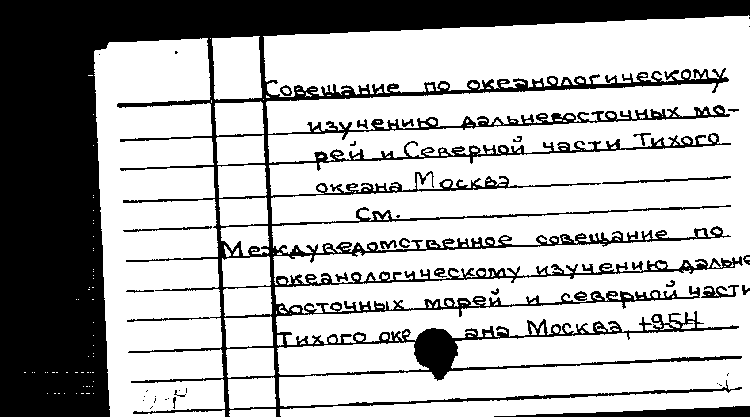 Совещание по океанологическому
изучению дальневосточных мо-
рей и Северной части Тихого
океана Москва
См.
Междуведомственное совещание по
океанологическому изучению дальне
восточных морей и северной части
Тихого океана. Москва, 1954